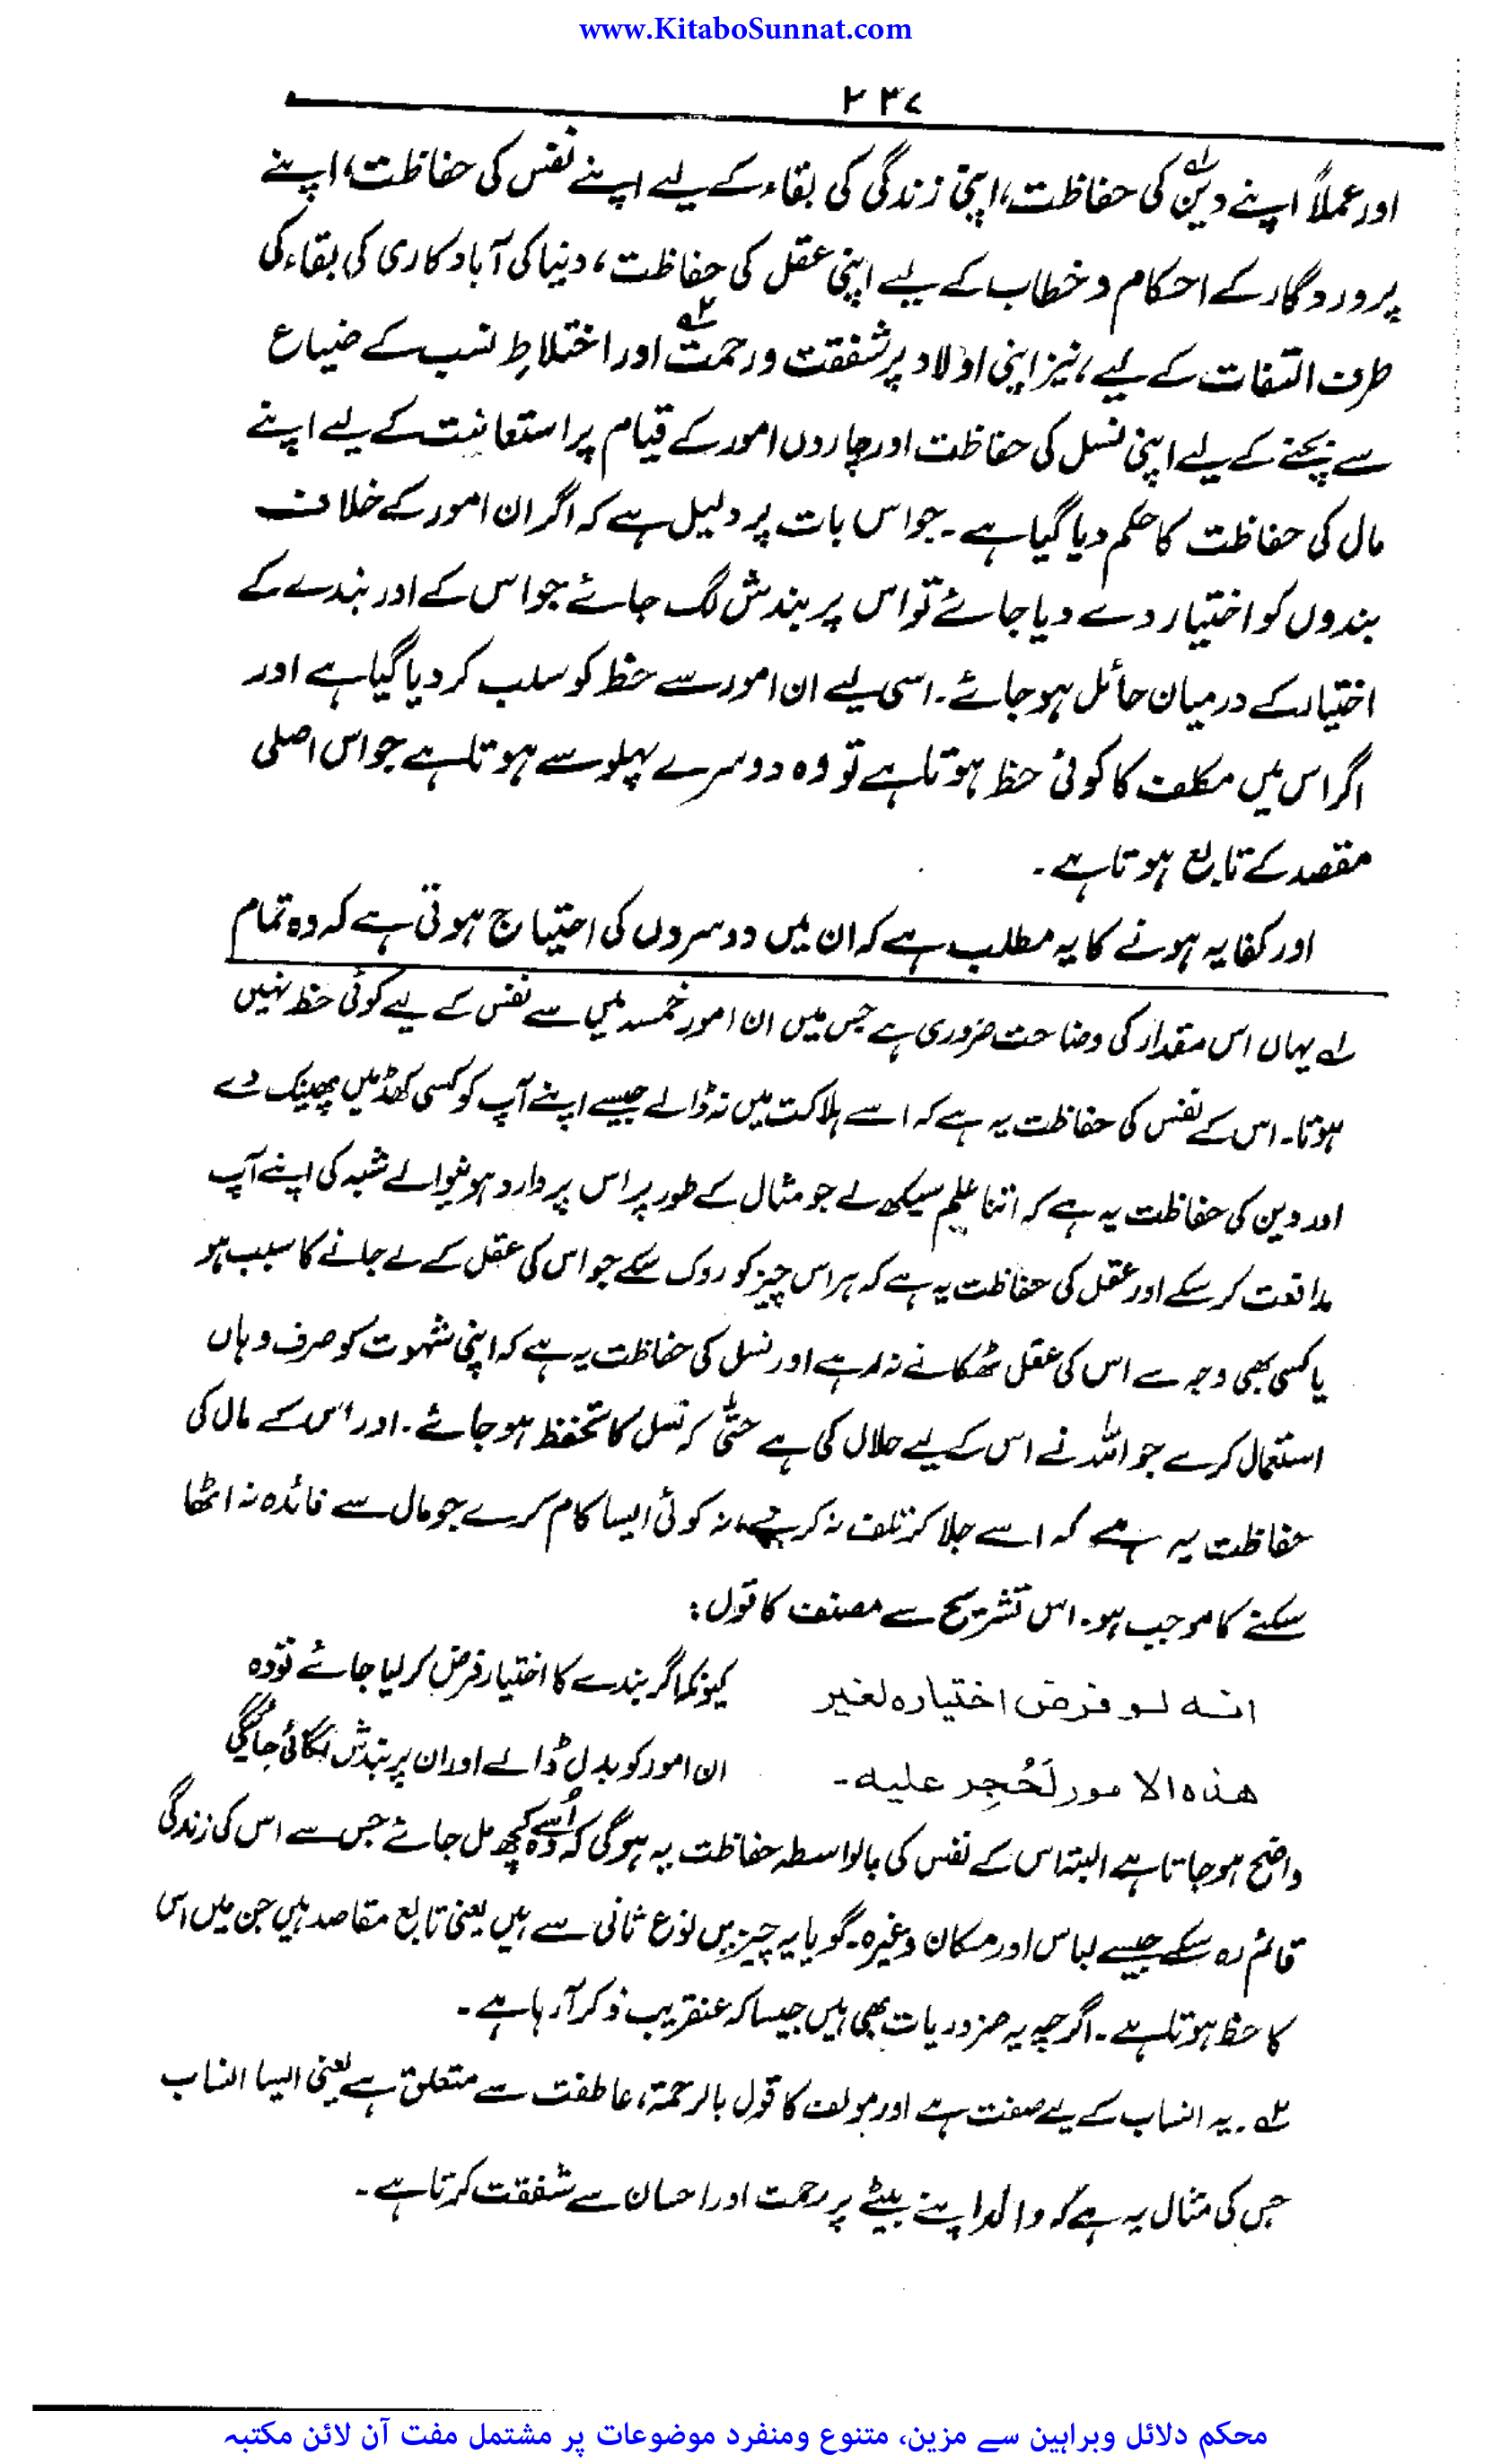 www.KitaboSunnat.com
۲۳۷
اور عملاً اپنے دین۱ کی حفاظت، اپنی زندگی کی بقاء کے لیے اپنے نفس کی حفاظت، اپنے
پروردگار کے احکام و خطاب کے لیے اپنی عقل کی حفاظت، دنیا کی آباد کاری کی بقاء کی
طرف التفات کے لیے، نیز اپنی اولاد پر شفقت و رحمت۲ اور اختلاطِ نسب کے ضیاع
سے بچنے کے لیے اپنی نسل کی حفاظت اور چاروں امور کے قیام پر استعانت کے لیے اپنے
مال کی حفاظت کا حکم دیا گیا ہے۔ جو اس بات پر دلیل ہے کہ اگر ان امور کے خلاف
بندوں کو اختیار دے دیا جائے تو اس پر بندش لگ جائے جو اس کے اور بندے کے
اختیار کے درمیان حائل ہو جائے۔ اسی لیے ان امور سے حظ کو سلب کر دیا گیا ہے اور
اگر اس میں مکلف کا کوئی حظ ہوتا ہے تو وہ دوسرے پہلو سے ہوتا ہے جو اس اصلی
مقصد کے تابع ہوتا ہے۔
اور کفایہ ہونے کا یہ مطلب ہے کہ ان میں دوسروں کی احتیاج ہوتی ہے کہ وہ تمام
۱ یہاں اس مقدار کی وضاحت ضروری ہے جس میں ان امور خمسہ میں سے نفس کے لیے کوئی حظ نہیں
ہوتا۔ اس کے نفس کی حفاظت یہ ہے کہ اسے ہلاکت میں نہ ڈالے جیسے اپنے آپ کو کسی کھڈ میں پھینک دے
اور دین کی حفاظت یہ ہے کہ اتنا علم سیکھ لے جو مثال کے طور پر اس پر وارد ہونیوالے شبہ کی اپنے آپ
مدافعت کر سکے اور عقل کی حفاظت یہ ہے کہ ہر اس چیز کو روک سکے جو اس کی عقل کے لے جانے کا سبب ہو
یا کسی بھی وجہ سے اس کی عقل ٹھکانے نہ رہے اور نسل کی حفاظت یہ ہے کہ اپنی شہوت کو صرف وہاں
استعمال کرے جو اللہ نے اس کے لیے حلال کی ہے حتیٰ کہ نسل کا تحفظ ہو جائے۔ اور اس کے مال کی
حفاظت یہ ہے کہ اسے جلا کر تلف نہ کرے، نہ کوئی ایسا کام کرے جو مال سے فائدہ نہ اٹھا
سکنے کا موجب ہو۔ اس تشریح سے مصنف کا قول:
انه لو فرض اختیاره لغیر کیونکہ اگر بندے کا اختیار فرض کر لیا جائے تو وہ
هذه الامور لَحُجِر علیه۔ ان امور کو بدل ڈالے اور ان پر بندش لگائی جائیگی
واضح ہو جاتا ہے البتہ اس کے نفس کی بالواسطہ حفاظت یہ ہوگی کہ اُسے وہ کچھ مل جائے جس سے اس کی زندگی
قائم رہ سکے جیسے لباس اور مکان وغیرہ۔ گویا یہ چیزیں نوع ثانی سے ہیں یعنی تابع مقاصد ہیں جن میں اس
کا حظ ہوتا ہے۔ اگرچہ یہ ضروریات بھی ہیں جیسا کہ عنقریب ذکر آ رہا ہے۔
۲۔ یہ انساب کے لیے صفت ہے اور مولف کا قول بالرحمۃ، عاطفت سے متعلق ہے یعنی ایسا انساب
جس کی مثال یہ ہے کہ والد اپنے بیٹے پر رحمت اور احسان سے شفقت کرتا ہے۔
محکم دلائل وبراہین سے مزین، متنوع ومنفرد موضوعات پر مشتمل مفت آن لائن مکتبہ